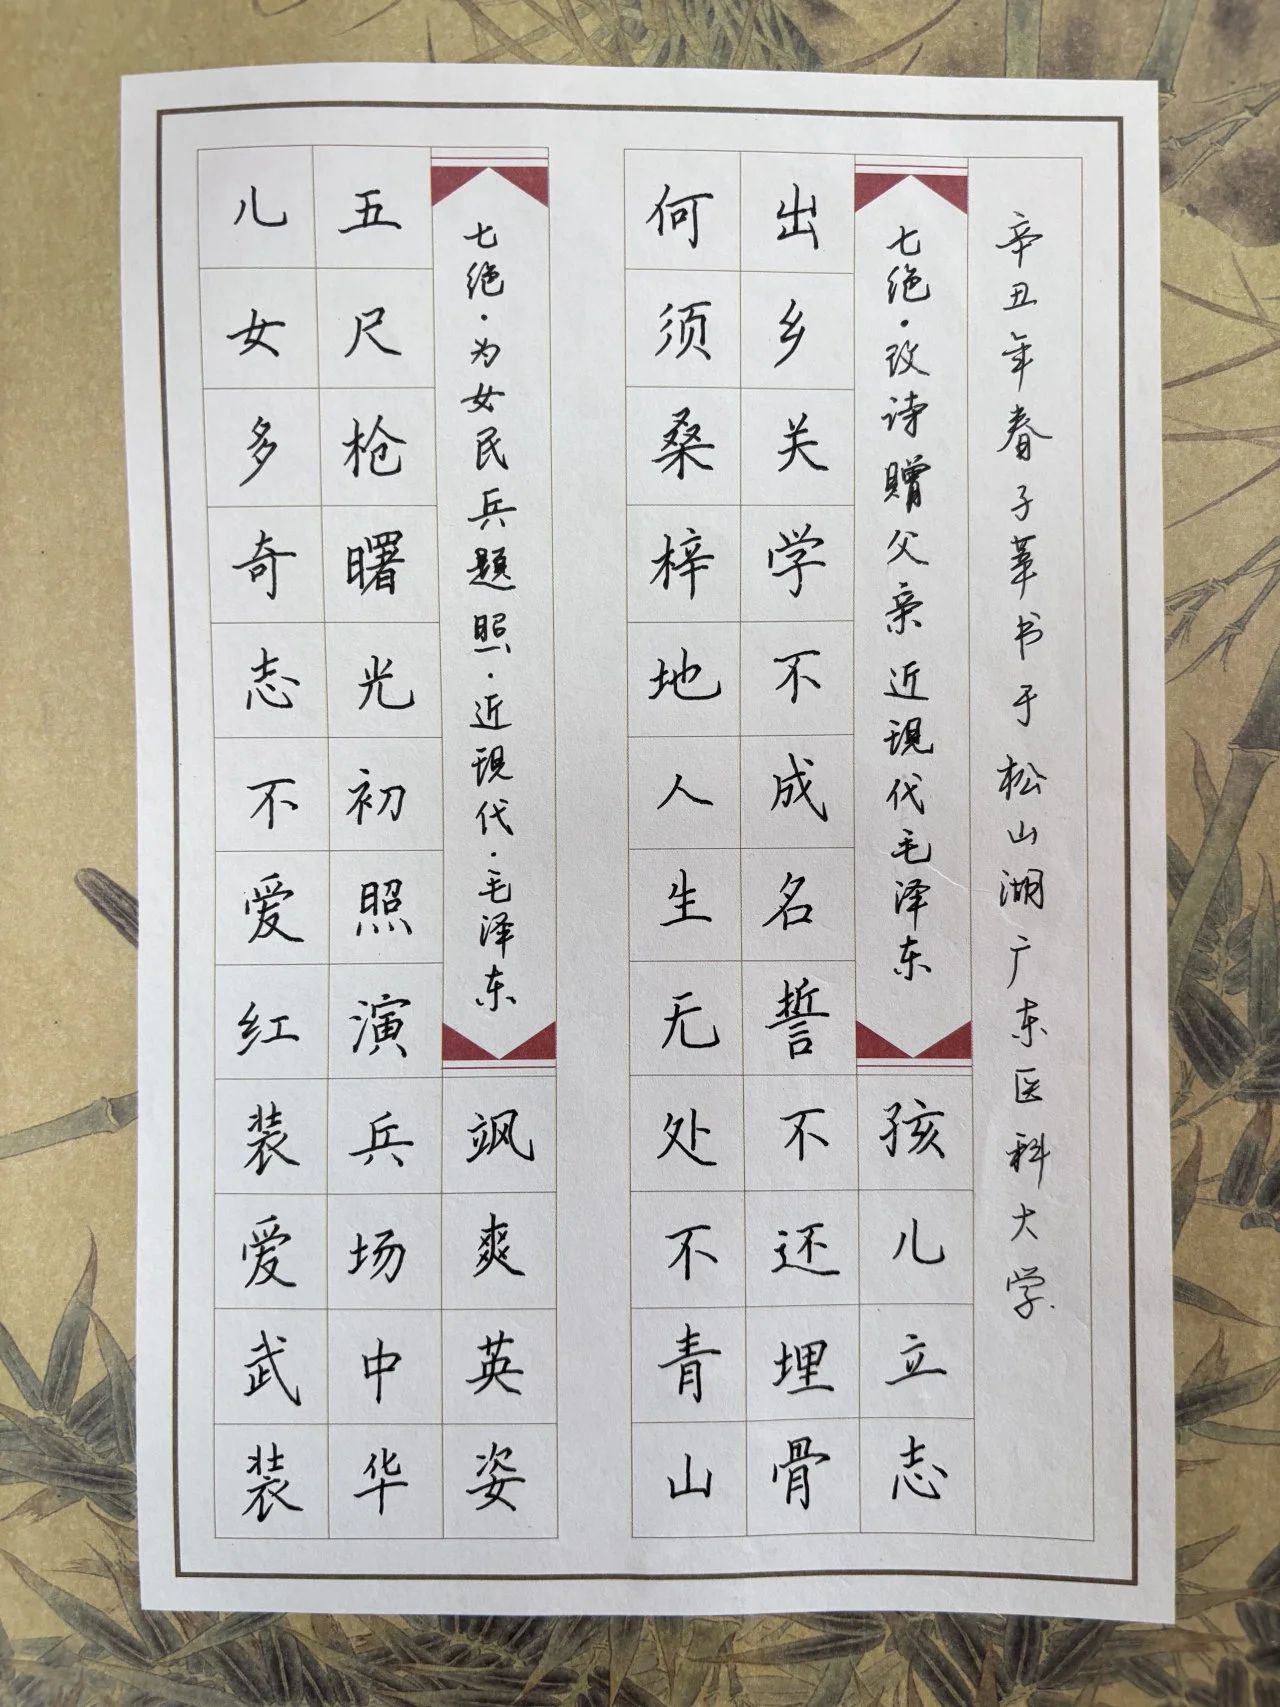 辛丑年春子书于松山湖广东医科大学
七绝·改诗赠父亲近现代毛泽东
孩儿立志
出乡关学不成名誓不还埋骨
何须桑梓地人生无处不青山
七绝·为女民兵题照·近现代·毛泽东
飒爽英姿
五尺枪曙光初照演兵场中华
儿女多奇志不爱红装爱武装